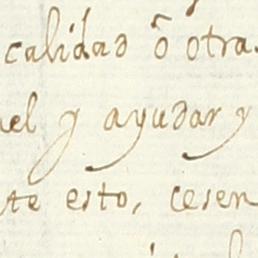 calidad ô otra
el y ayudar y
te esto, cesen